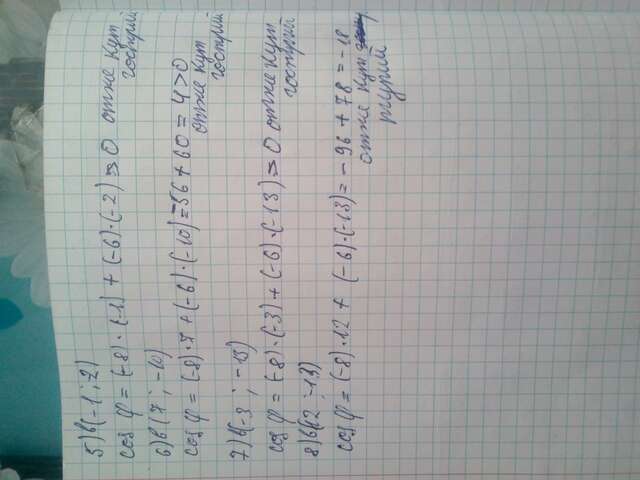 5) b(-1; 2)
cos φ = (-8)·(-1) + (-6)·(-2) > 0 отже кут
гострий
6) b(7; -10)
cos φ = (-8)·7 + (-6)·(-10) = -56 + 60 = 4 > 0
отже кут
гострий
7) b(-3; -13)
cos φ = (-8)·(-3) + (-6)·(-13) > 0 отже кут
гострий
8) b(12; -13)
cos φ = (-8)·12 + (-6)·(-13) = -96 + 78 = -18
отже кут